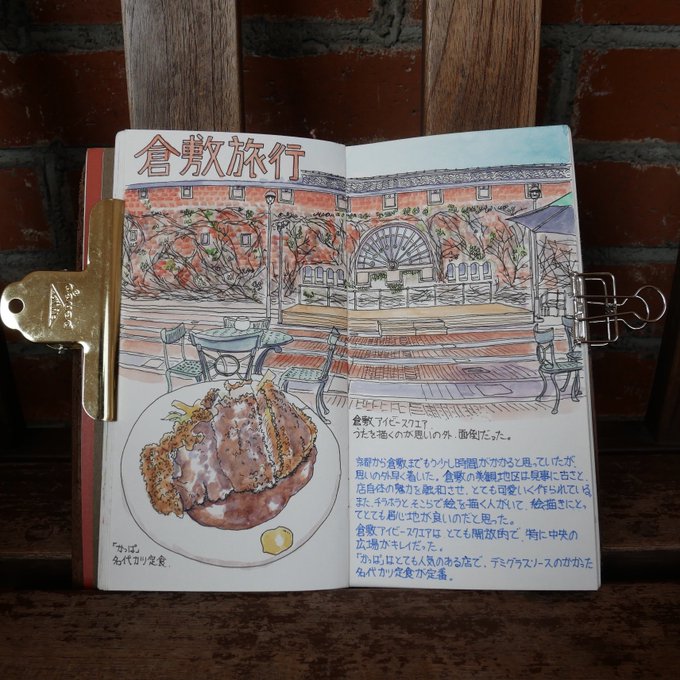 倉敷旅行
倉敷アイビースクエア
つたを描くのが思いの外、面倒だった。
京都から倉敷までもう少し時間がかかると思っていたが、
思いの外早く着いた。倉敷の美観地区は見事に古さと、
店自体の魅力を融和させ、とても可愛いく作られている。
また、チラホラと そこらで絵を描く人がいて、絵描きにとっ
てとても居心地が良いのだと思った。
倉敷アイビースクエアは とても開放的で、特に中央の
広場がキレイだった。
「かっぱ」はとても人気のある店で、デミグラスソースのかかった
名代カツ定食が定番。
「かっぱ」
名代カツ定食.